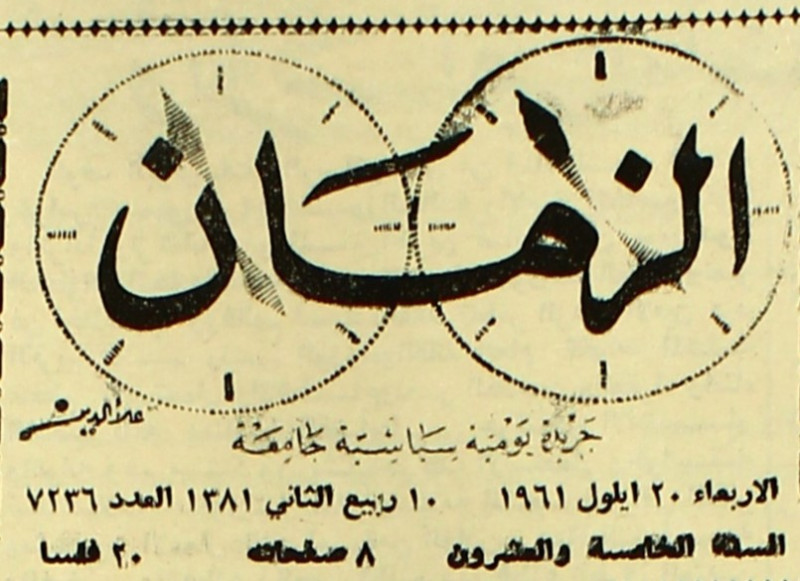 الزمان
علاء الدين
جريدة يومية سياسية جامعة
الاربعاء ٢٠ ايلول ١٩٦١ ١٠ ربيع الثاني ١٣٨١ العدد ٧٢٣٦
السنة الخامسة والعشرون ٨ صفحات ٢٠ فلسا